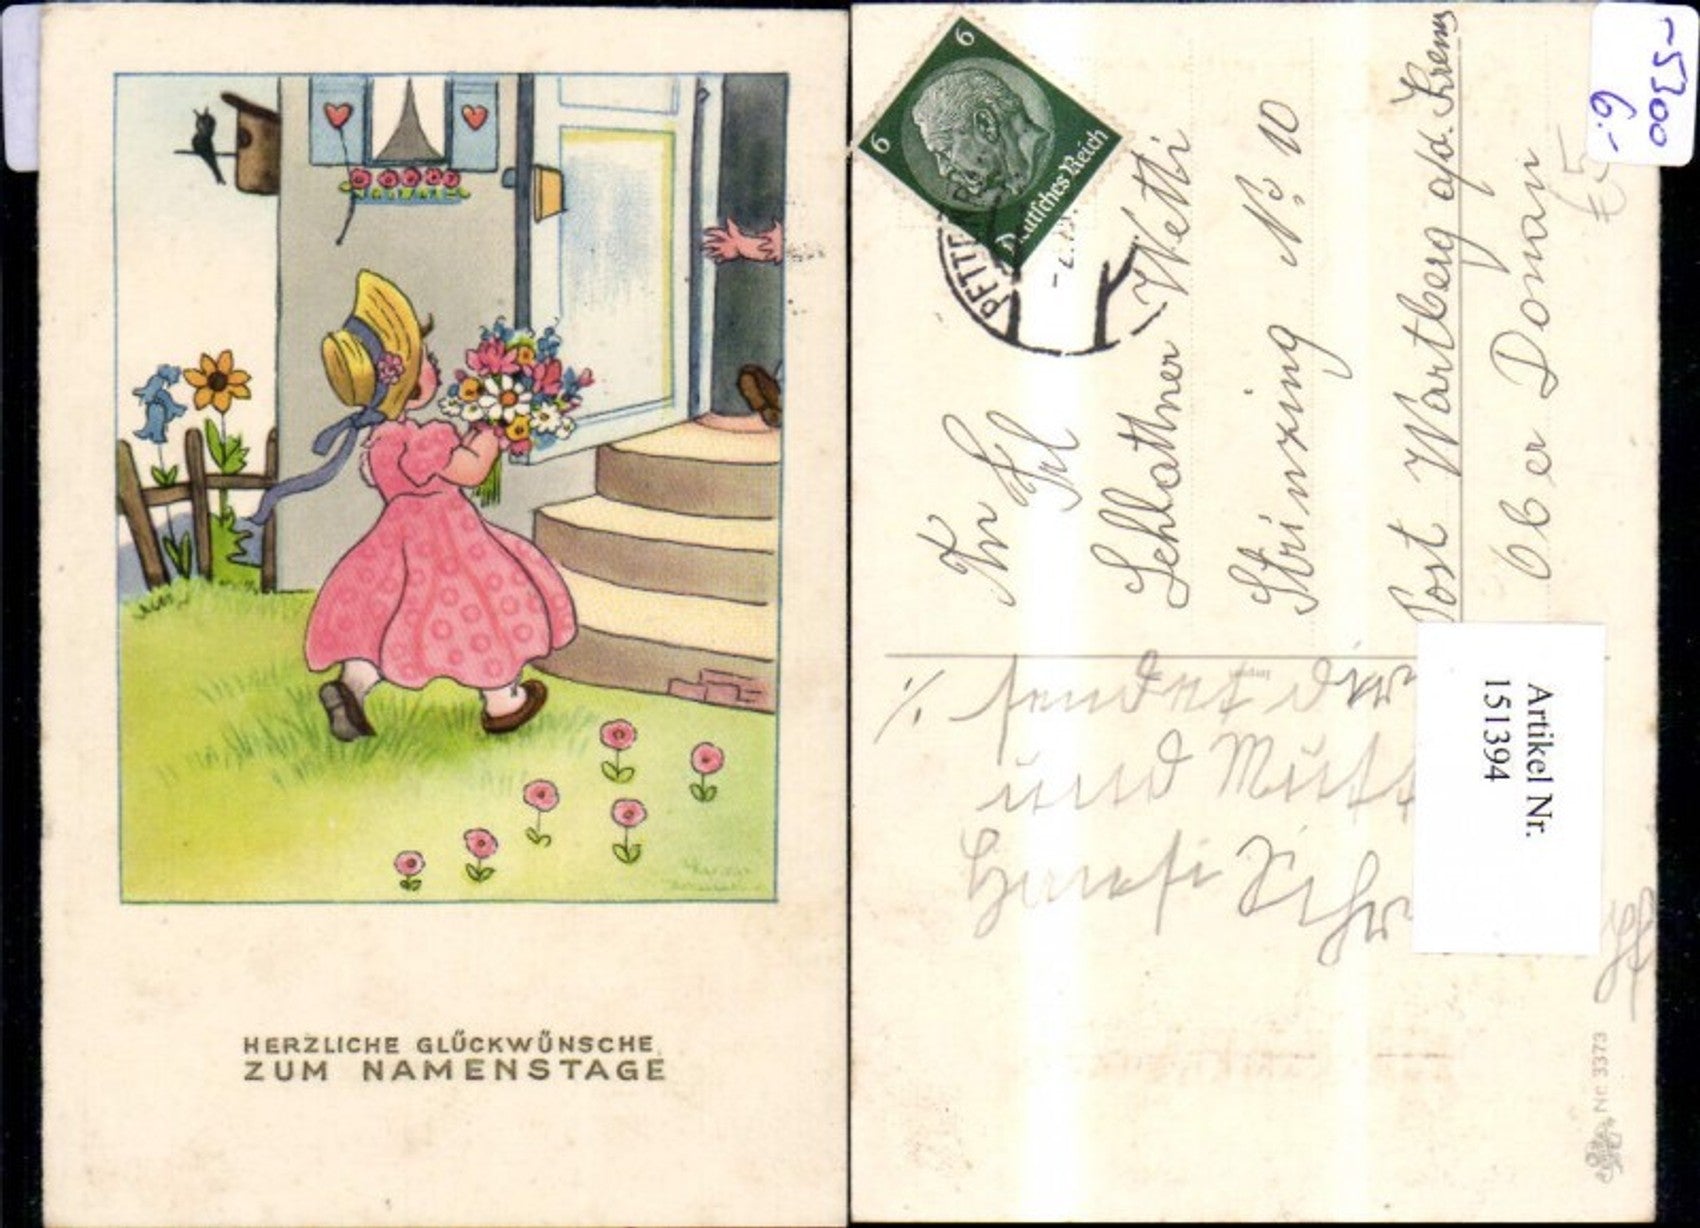 HERZLICHE GLÜCKWÜNSCHE
ZUM NAMENSTAGE
6
6
Deutsches Reich
Frl
Schlattner Wetti
Strinzing No 10
Post Wartberg a/d. Krems
Ober Donau
sendet dir
und Mutt
Hansi
Artikel Nr.
151394
Nr. 3373
~5300
6.-
€5